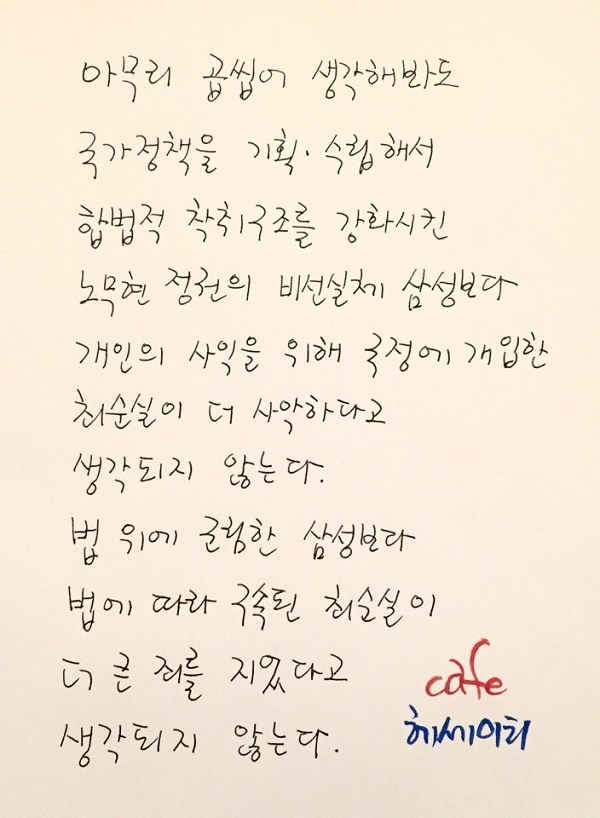 아무리 곱씹어 생각해봐도
국가정책을 기획·수립해서
합법적 착취구조를 강화시킨
노무현 정권의 비선실체 삼성보다
개인의 사익을 위해 국정에 개입한
최순실이 더 사악하다고
생각되지 않는다.
법 위에 군림한 삼성보다
법에 따라 구속된 최순실이
더 큰 죄를 지었다고
생각되지 않는다.
cafe
헤세이티